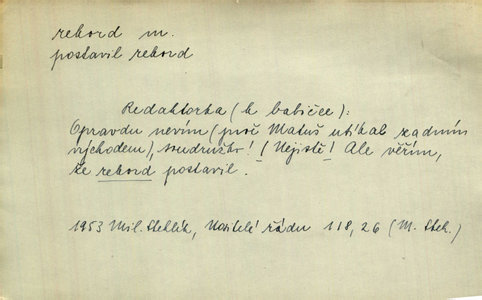 rekord m.
postavil rekord
Redaktorka (k babičce):
Opravdu nevím (proč Matuš utíkal zadním
východem), soudružko! (Nejistě! Ale věřím,
že rekord postavil.
1953 Mil. Stehlík, Nositelé řádu 118,26 (M. Steh.)